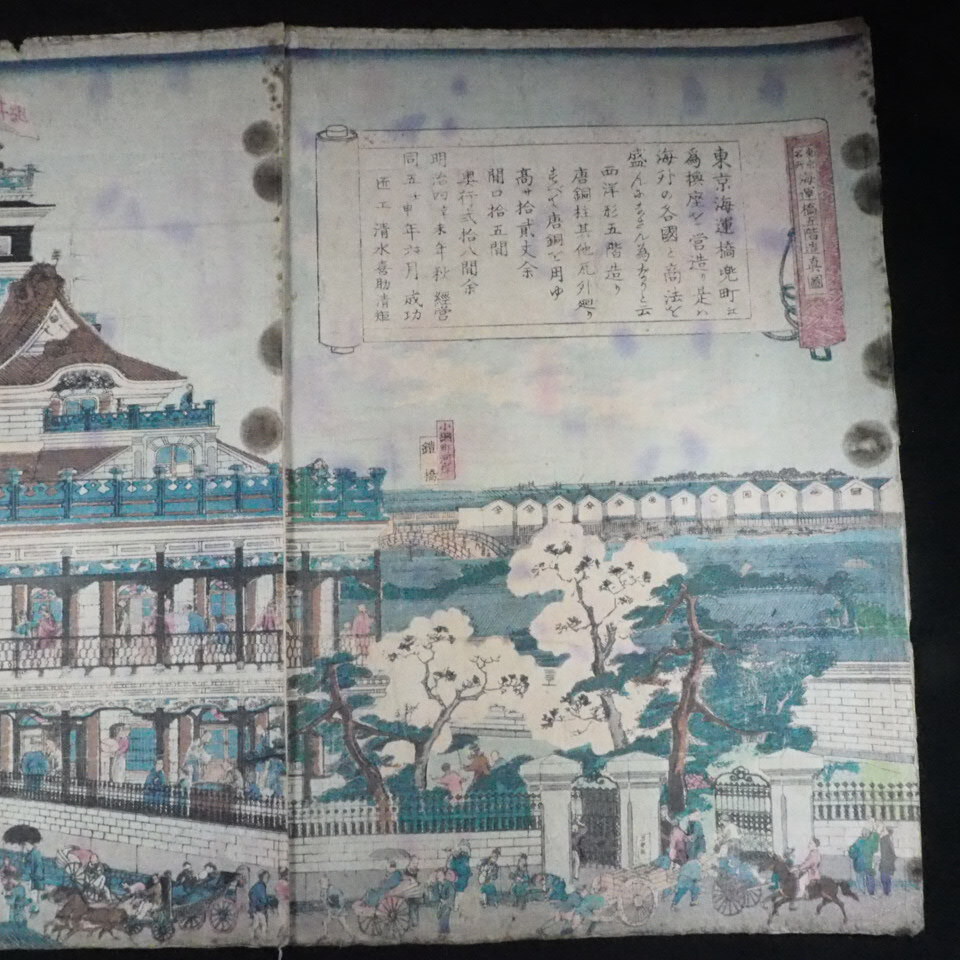 東京
名所
海運橋五階造真圖
東京海運橋兜町に
為換座を営造り是は
海外の各國と商法を
盛んになさん為なりと云
西洋形五階造り
唐銅柱其他凡外廻り
すべて唐銅を用ゆ
高サ拾貳丈余
間口拾五間
奥行弐拾八間余
明治四辛未年秋経営
同五壬申年六月成功
匠工 清水喜助清矩
小網町
鎧橋